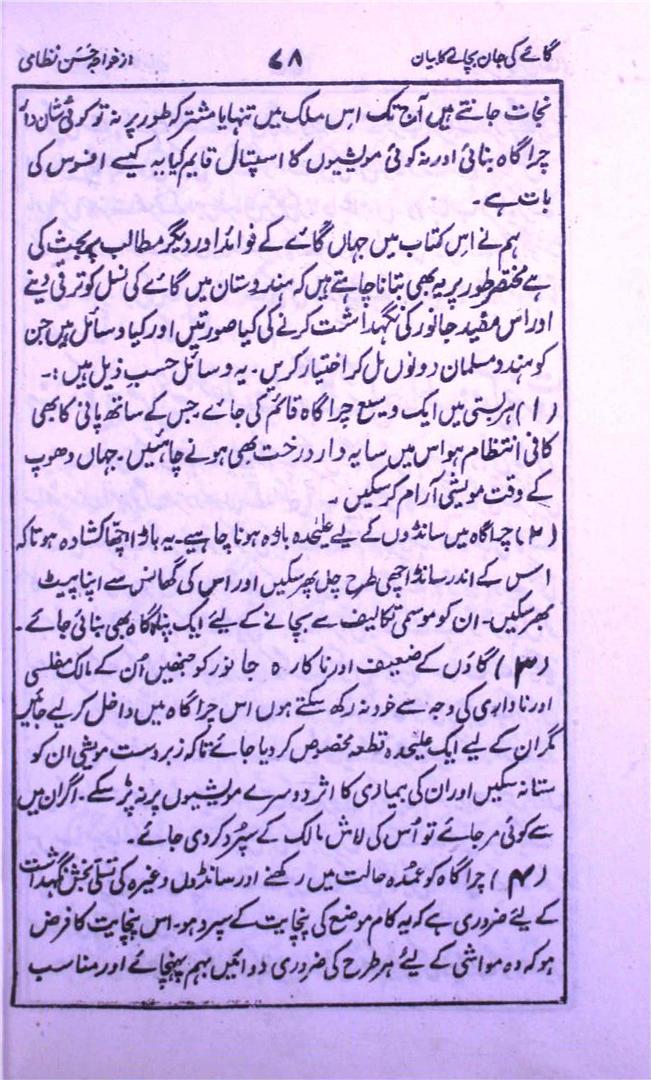 گائے کی جان بچانے کا بیان ۷۸ از خواجہ حسن نظامی
نجات جانتے ہیں آج تک اس ملک میں تنہا یا مشترکہ طور پر نہ تو کوئی شاندار
چراگاہ بنائی اور نہ کوئی مویشیوں کا اسپتال قایم کیا یہ کیسے افسوس کی
بات ہے۔
ہم نے اس کتاب میں جہاں گائے کے فوائد اور دیگر مطالب پر بحث کی
ہے مختصر طور پر یہ بھی بتانا چاہتے ہیں کہ ہندوستان میں گائے کی نسل کو ترقی دینے
اور اس مفید جانور کی نگہداشت کرنے کی کیا صورتیں اور کیا وسائل ہیں جن
کو ہندو مسلمان دونوں مل کر اختیار کریں۔ یہ وسائل حسب ذیل ہیں :۔
(۱) ہر بستی میں ایک وسیع چراگاہ قائم کی جائے جس کے ساتھ پانی کا بھی
کافی انتظام ہو اس میں سایہ دار درخت بھی ہونے چاہئیں۔ جہاں دھوپ
کے وقت مویشی آرام کر سکیں۔
(۲) چراگاہ میں سانڈوں کے لیے علیٰحدہ باڑہ ہونا چاہیے۔ یہ باڑا اچھا کشادہ ہو تاکہ
اس کے اندر سانڈ اچھی طرح چل پھر سکیں اور اس کی گھانس سے اپنا پیٹ
بھر سکیں۔ ان کو موسمی تکالیف سے بچانے کے لیے ایک پناہ گاہ بھی بنائی جائے۔
(۳) گاؤں کے ضعیف اور ناکارہ جانور کو جنھیں اُن کے مالک مفلسی
اور ناداری کی وجہ سے خود نہ رکھ سکتے ہوں اس چراگاہ میں داخل کر لیے جائیں
مگر ان کے لیے ایک علیٰحدہ قطعہ مخصوص کر دیا جائے تاکہ زبردست مویشی ان کو
ستا نہ سکیں اور ان کی بیماری کا اثر دوسرے مویشیوں پر نہ پڑ سکے۔ اگر ان میں
سے کوئی مر جائے تو اُس کی لاش مالک کے سپرد کر دی جائے۔
(۴) چراگاہ کو عمدہ حالت میں رکھنے اور سانڈوں وغیرہ کی تسلی بخش نگہداشت
کے لیئے ضروری ہے کہ یہ کام موضع کی پنچایت کے سپرد ہو۔ اس پنچایت کا فرض
ہو کہ وہ مواشی کے لیئے ہر طرح کی ضروری دوائیں بہم پہنچائے اور مناسب